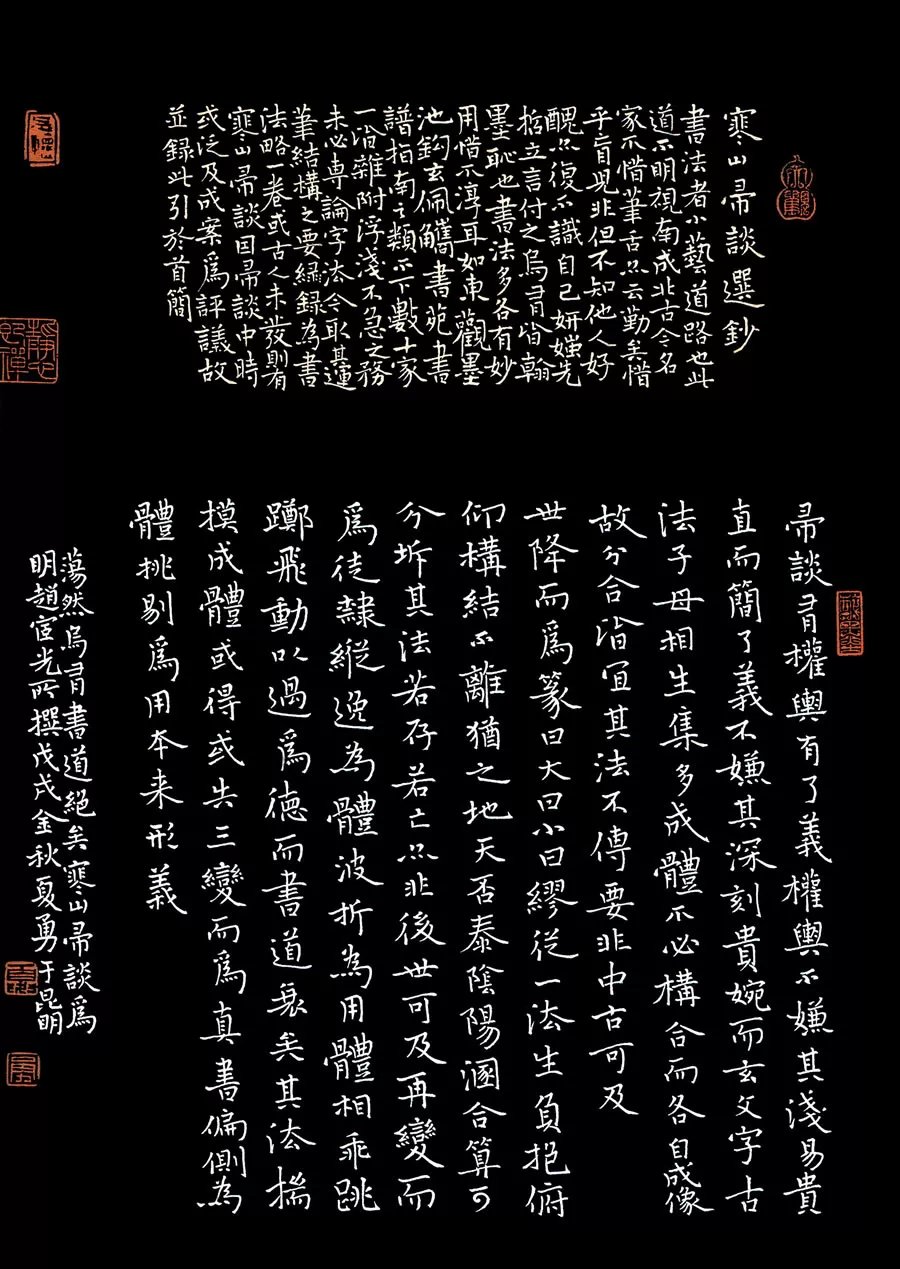 寒山帚談選鈔
書法者小藝道路也此
道不明視南成北古今名
家不惜筆舌然云勤矣惜
乎盲見非但不知他人好
醜然復不識自己妍媸先
哲立言付之烏有皆翰
墨恥也書法多各有妙
用惜不淳耳如東觀墨
池鈎玄佩觿書苑書
譜指南之類不下數十家
一沿雜附浮淺不急之務
未必專論字法今取其運
筆結構之要緝録為書
法略一卷或古人未發則有
寒山帚談因帚談中時
或泛及成案爲評議故
並録此引於首簡
帚談有權輿有了義權輿不嫌其淺易貴
直而簡了義不嫌其深刻貴婉而玄文字古
法子母相生集多成體不必構合而各自成像
故分合皆宜其法不傳要非中古可及
世降而爲篆曰大曰小曰繆從一法生負抱俯
仰構結不離猶之地天否泰陰陽溷合算可
分坼其法若存若亡然非後世可及再變而
爲徒隸縱逸為體波折為用體相乖跳
躑飛動以過爲德而書道衰矣其法揣
摸成體或得或失三變而爲真書偏側為
體挑剔爲用本来形義
蕩然烏有書道絕矣寒山帚談爲
明趙宧光所撰戊戌金秋夏勇于昆明